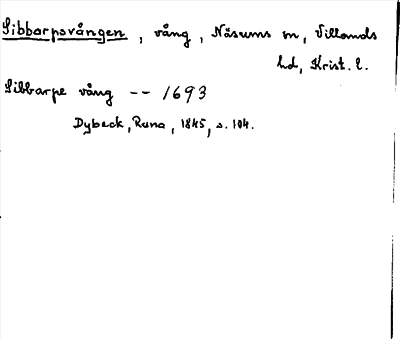 Sibbarpsvången, vång, Näsums sn, Villands
hd, Krist. l.
Sibbarpe vång -- 1693
Dybeck, Runa, 1845, s. 104.